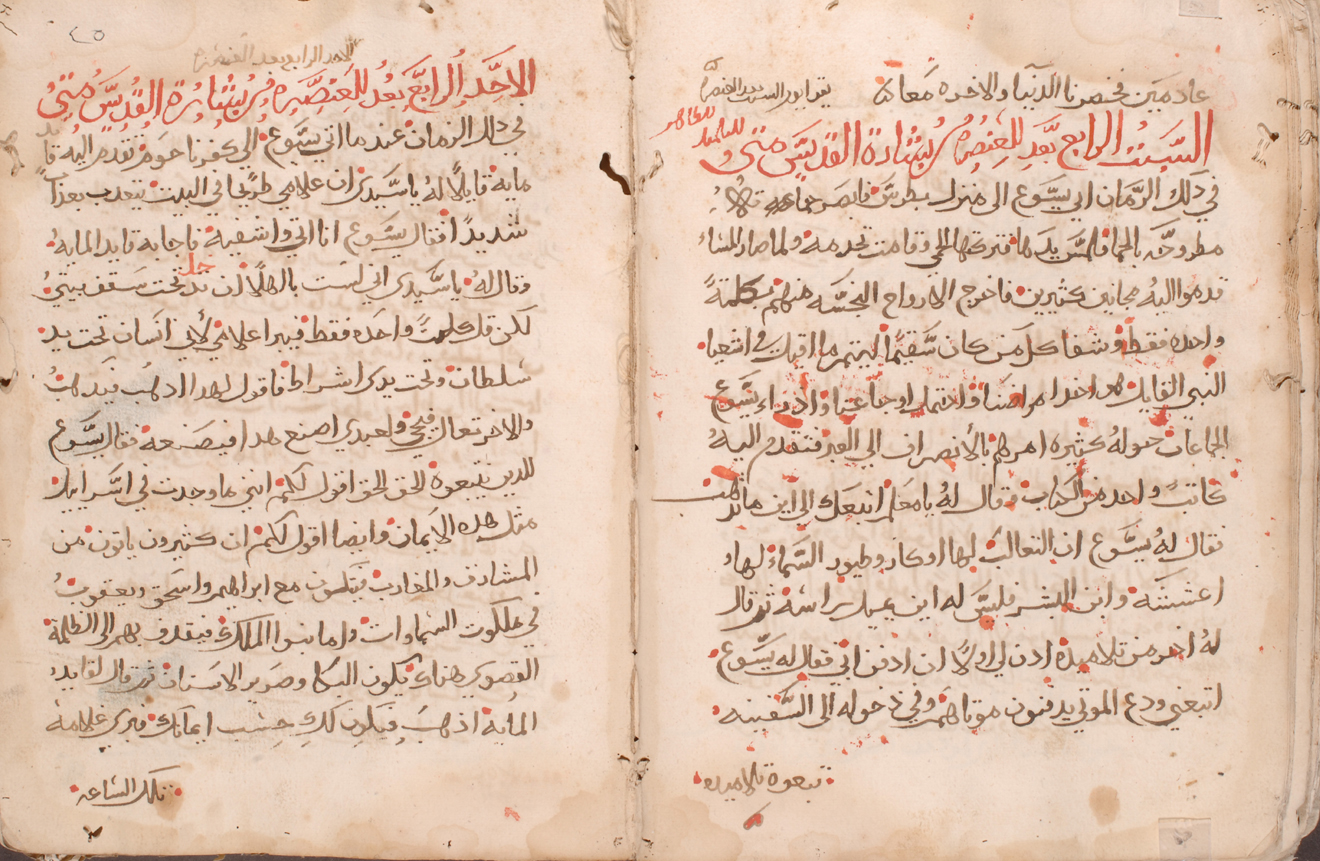 عادمين فخسرنا الدنيا والاخره معا
يقرا يوم السبت بعد العنصرة
السبت الرابع بعد العنصره من بشارة القديس متى
في دلك الزمان اتى يسوع الى منزل بطرس فابصر حماته
مطروحه بالحما فلمس يدها فتركتها الحمى وقامت تخدمه ولما صار المساء
قدموا اليه مجانين كثيرين فاخرج الارواح النجسه منهم بكلمة
واحده فقط وشفا كل من كان سقيما ليتم ما اقيل في اشعيا
النبي القايل هو اخدا مراضنا واحتمل اوجاعنا واد راء يسوع
الجماعات حوله كثيره امرهم بالانصراف الى العبر فتقدم اليه
كاتب واحد من الكتاب وقال له يا معلم اتبعك الى اين ما تدهب
فقال له يسوع ان التعالب لها اوكار وطيور السماء لها
اعششه وابن البشر فليس له اين يميل براسه ثم قال
له اخر من تلاميده ادن لي اولا ان ادفن ابي فقال له يسوع
اتبعني ودع الموتى يدفنون موتاهم وفي دخوله الى السفينه
تبعوه تلاميده
٤٥
الاحد الرابع بعد العنصرة
الاحد الرابع بعد العنصره من بشارة القديس متى
في دلك الزمان عند ما اتى يسوع الى كفرناحوم تقدم اليه قايد
مايه قايلا له يا سيدي ان غلامي طريحا في البيت يتعدب بعداب
شديد فقال يسوع انا اتي واشفيه فاجابه قايد المايه
وقال له يا سيدي اني لست باهلا ان تدخل تحت سقف بيتي
لكن قل كلمت واحده فقط فيبرا غلامي لأني انسان تحت يد
سلطان وتحت يدي اشراط فاقول لهدا ادهب فيدهب
والاخر تعال فيجي ولعبدي اصنع هدا فيصنعه فقال يسوع
للدين يتبعوه الحق الحق اقول لكم انني ما وجدت في اسراييل
مثل هده الايمان وايضا اقول لكم ان كثيرون ياتون من
المشارق والمغارب فيتكون مع ابراهيم واسحق ويعقوب
في ملكوت السماوات واما بنوا الملكوت فيقدفو بهم الى الظلمة
القصوى هناك يكون البكا وصرير الاسنان ثم قال لقايد
المايه ادهب فيكون لك حسب ايمانك فبري غلامه
تلك الساعه